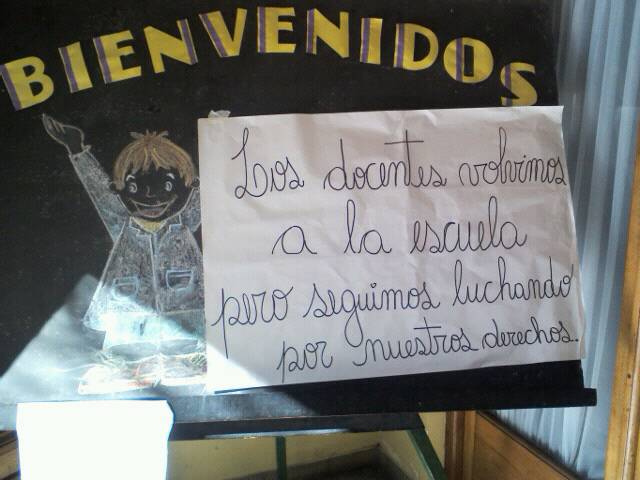 BIENVENIDOS
Los docentes volvimos
a la escuela
pero seguimos luchando
por nuestros derechos.